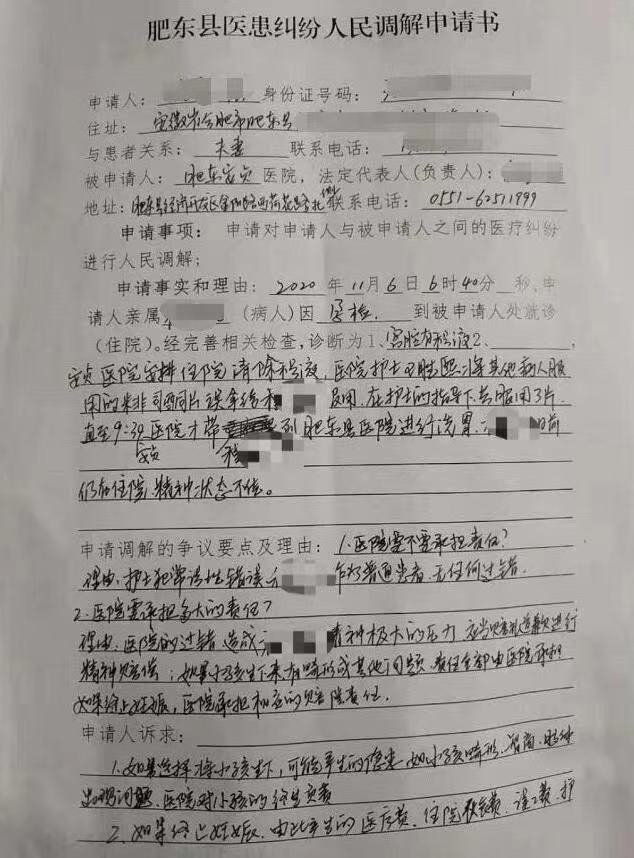 肥东县医患纠纷人民调解申请书
申请人： 身份证号码：
住址：安徽省合肥市肥东县
与患者关系：夫妻 联系电话：
被申请人：肥东安贞医院，法定代表人(负责人)：
地址：肥东县经济开发区金阳路西荷花路北侧 联系电话：0551-62511999
申请事项：申请对申请人与被申请人之间的医疗纠纷
进行人民调解；
申请事实和理由：2020年11月6日6时40分 秒，申
请人亲属 (病人)因孕检 到被申请人处就诊
(住院)。经完善相关检查，诊断为1、宫腔有积液2、
安贞医院安排住院清除积液，医院护士 将其他病人服
用的米非司酮片误拿给 服用，在护士的指导下共服用3片
直至9:30医院才带 到肥东县医院进行洗胃， 目前
安贞 我
仍在住院，精神状态不佳。
申请调解的争议要点及理由：1.医院需不需承担责任？
理由：护士犯常识性错误， 作为普通患者，无任何过错
2.医院需承担多大的责任？
理由：医院的过错造成 精神极大的压力，应当 进行
精神赔偿；如果小孩生下来有畸形或其他问题，责任全部由医院承担
如果终止妊娠，医院承担相应的赔偿责任。
申请人诉求：
1.如果选择将小孩生下，可能产生的隐患，如小孩畸形、智商、精神
出现问题，医院对小孩的终生负责
2.如果终止妊娠，由此产生的医疗费、住院 费、误工费、护